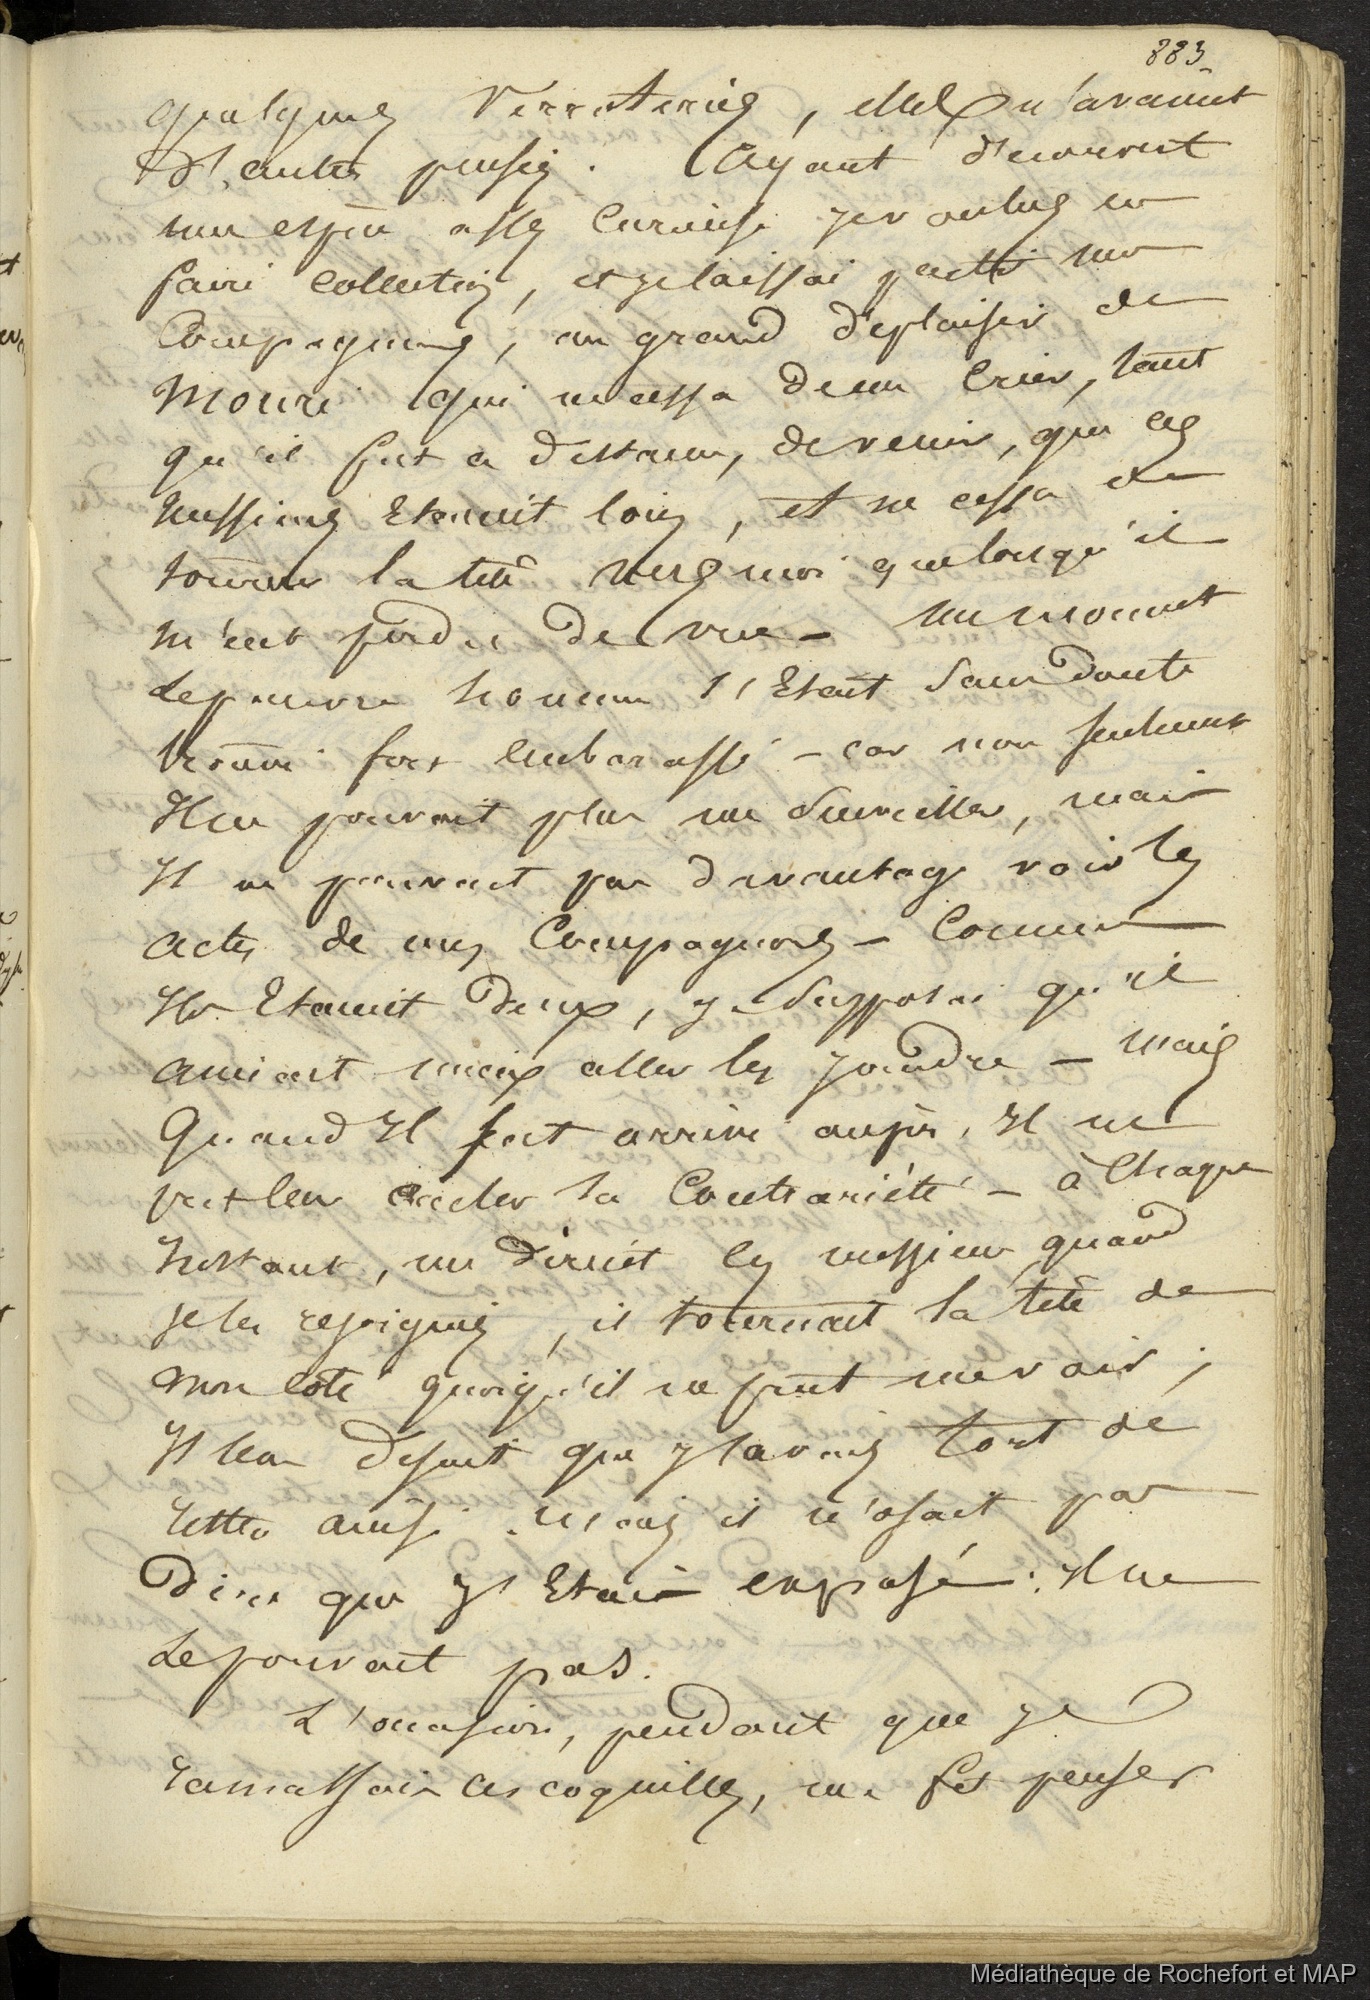 883
quelques verroteries, elles n'avaient
d'autres pensées. Ayant d'ecouvert
une espèce assez curieuse je voulus en
faire collection, et je laissai partir mes
Compagnons, au grand d'eplaisir de
Mouri qui ne cessa de me crier, tant
qu'il fut a distance, de venir, que ces
messieurs Etaient loin, et ne cessa de
tourner la tête vers moi que lorsqu'il
m'eut perdu de vue – un moment
le pauvre homme s'Etait sans doute
trouvé fort embarassé – car non seulement
Il ne pouvait plus me surveiller, mais
Il ne pouvait pas davantage voir les
actes de mes Compagnons – Comme
Ils Etaient deux, je supposai qu'il
aimait mieux aller les joindre – mais
Quand Il fut arrivé auprès, Il ne
put leur cacher sa Contrariété – à Chaque
instant, me dirent ces messieurs quand
je les rejoignis, il tournait la tête de
mon coté quoiqu'il ne put me voir ;
Il leur disait que j'avais tort de
rester ainsi. Mais il n'osait pas
dire que j'Etais exposé. Il ne
le pouvait pas.
L'occasion, pendant que je
ramassais ces coquilles, me fit penser
Médiathèque de Rochefort et MAP